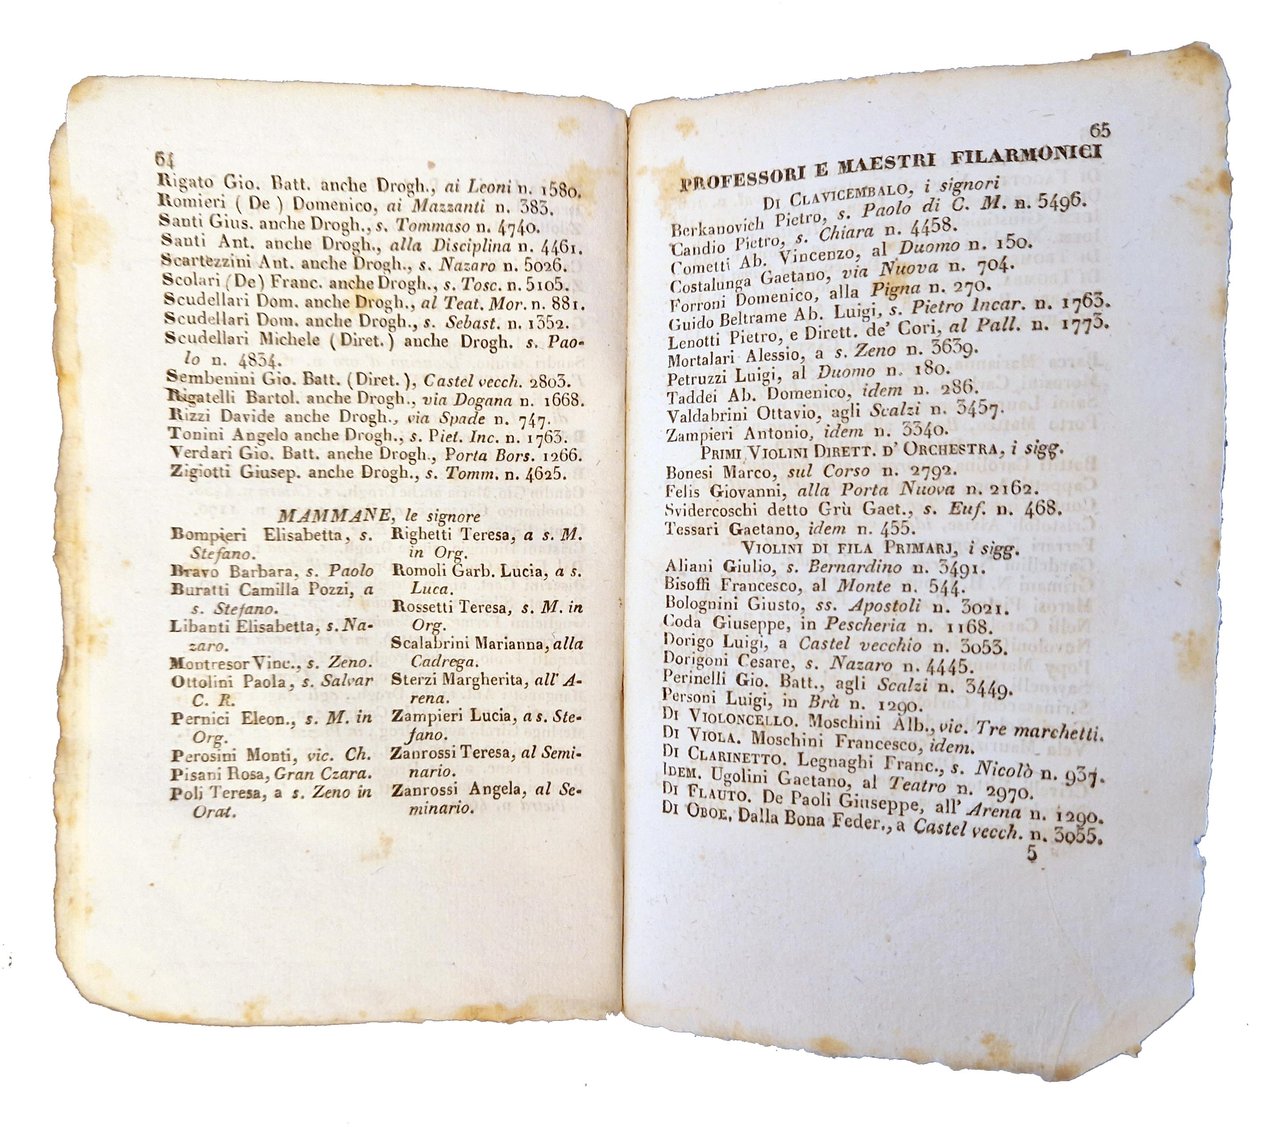 64
Rigato Gio. Batt. anche Drogh., ai Leoni n. 1580.
Romieri ( De ) Domenico, ai Mazzanti n. 383.
Santi Gius. anche Drogh., s. Tommaso n. 4740.
Santi Ant. anche Drogh., alla Disciplina n. 4461.
Scartezzini Ant. anche Drogh., s. Nazaro n. 5026.
Scolari (De) Franc. anche Drogh., s. Tosc. n. 5105.
Scudellari Dom. anche Drogh., al Teat. Mor. n. 881.
Scudellari Dom. anche Drogh., s. Sebast. n. 1352.
Scudellari Michele (Diret.) anche Drogh. s. Pao-
lo n. 4834.
Sembenini Gio. Batt. (Diret.), Castel vecch. 2803.
Rigatelli Bartol. anche Drogh., via Dogana n. 1668.
Rizzi Davide anche Drogh., via Spade n. 747.
Tonini Angelo anche Drogh., s. Piet. Inc. n. 1763.
Verdari Gio. Batt. anche Drogh., Porta Bors. 1266.
Zigiotti Giusep. anche Drogh., s. Tomm. n. 4625.
MAMMANE, le signore
Bompieri Elisabetta, s.
Stefano.
Bravo Barbara, s. Paolo
Buratti Camilla Pozzi, a
s. Stefano.
Libanti Elisabetta, s. Na-
zaro.
Montresor Vinc., s. Zeno.
Ottolini Paola, s. Salvar
C. R.
Pernici Eleon., s. M. in
Org.
Perosini Monti, vic. Ch.
Pisani Rosa, Gran Czara.
Poli Teresa, a s. Zeno in
Orat.
Righetti Teresa, a s. M.
in Org.
Romoli Garb. Lucia, a s.
Luca.
Rossetti Teresa, s. M. in
Org.
Scalabrini Marianna, alla
Cadrega.
Sterzi Margherita, all' A-
rena.
Zampieri Lucia, a s. Ste-
fano.
Zanrossi Teresa, al Semi-
nario.
Zanrossi Angela, al Se-
minario.
65
PROFESSORI E MAESTRI FILARMONICI
DI CLAVICEMBALO, i signori
Berkanovich Pietro, s. Paolo di C. M. n. 5496.
Candio Pietro, s. Chiara n. 4458.
Cometti Ab. Vincenzo, al Duomo n. 150.
Costalunga Gaetano, via Nuova n. 704.
Forroni Domenico, alla Pigna n. 270.
Guido Beltrame Ab. Luigi, s. Pietro Incar. n. 1763.
Lenotti Pietro, e Dirett. de' Cori, al Pall. n. 1773.
Mortalari Alessio, a s. Zeno n. 3639.
Petruzzi Luigi, al Duomo n. 180.
Taddei Ab. Domenico, idem n. 286.
Valdabrini Ottavio, agli Scalzi n. 3457.
Zampieri Antonio, idem n. 3340.
PRIMI VIOLINI DIRETT. D' ORCHESTRA, i sigg.
Bonesi Marco, sul Corso n. 2792.
Felis Giovanni, alla Porta Nuova n. 2162.
Svidercoschi detto Grù Gaet., s. Euf. n. 468.
Tessari Gaetano, idem n. 455.
VIOLINI DI FILA PRIMARJ, i sigg.
Aliani Giulio, s. Bernardino n. 3491.
Bisoffi Francesco, al Monte n. 544.
Bolognini Giusto, ss. Apostoli n. 3021.
Coda Giuseppe, in Pescheria n. 1168.
Dorigo Luigi, a Castel vecchio n. 3053.
Dorigoni Cesare, s. Nazaro n. 4445.
Perinelli Gio. Batt., agli Scalzi n. 3449.
Personi Luigi, in Brà n. 1290.
DI VIOLONCELLO. Moschini Alb., vic. Tre marchetti.
DI VIOLA. Moschini Francesco, idem.
DI CLARINETTO. Legnaghi Franc., s. Nicolò n. 937.
IDEM. Ugolini Gaetano, al Teatro n. 2970.
DI FLAUTO. De Paoli Giuseppe, all' Arena n. 1290.
DI OBOE. Dalla Bona Feder., a Castel vecch. n. 3055.
5